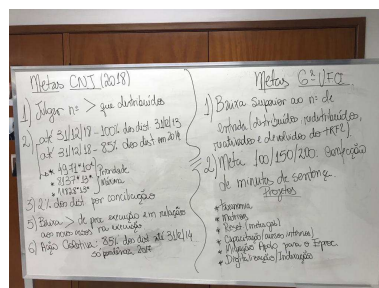 Metas CNJ (2018)
1) Julgar nº > que distribuídos
2) até 31/12/18 - 100% dos dist. 31/12/13
até 31/12/18 - 85% dos dist em 2014
Prioridade
Máxima
3) 2% dos dist. por conciliação
5) Baixa > de proc execução em relação
aos novos casos na execução
6) Ação Coletiva: 85% dos dist até 31/12/14
Metas 6ª VFCI
1) Baixa superior ao nº de
entrada (distribuídos, redistribuídos,
reativados e devolvidos do TRF2).
2) Meta 100/150/200: confecção
de minutas de sentença
Projetos
* Taxonomia
* Matrizes
* Reset (metas gab)
* Capacitação (cursos internos)
* Migração Apolo para o Eproc
* Digitalização/Indexação